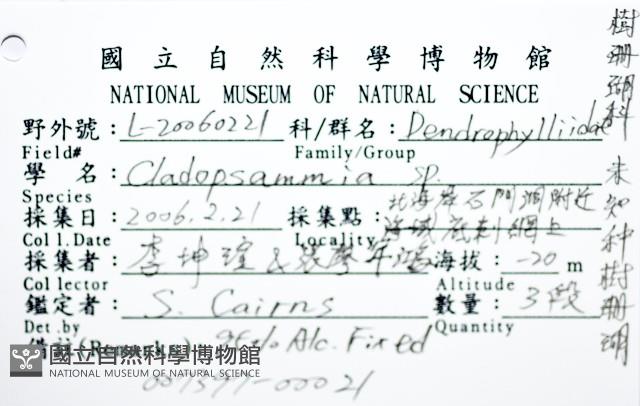 國立自然科學博物館
NATIONAL MUSEUM OF NATURAL SCIENCE
野外號：L-20060221 科/群名：Dendrophylliidae
Field# Family/Group
學 名：Cladopsammia sp.
Species
採集日：2006.2.21 採集點：北海岸石門洞附近海域底刺網上
Coll.Date Locality
採集者：李坤瑄& 海拔：-20 m
Collector Altitude
鑑定者：S. Cairns 數量：3段
Det.by Quantity
備註(Remarks) 95% Alc. Fixed
樹珊瑚科 未知种樹珊瑚
國立自然科學博物館
NATIONAL MUSEUM OF NATURAL SCIENCE